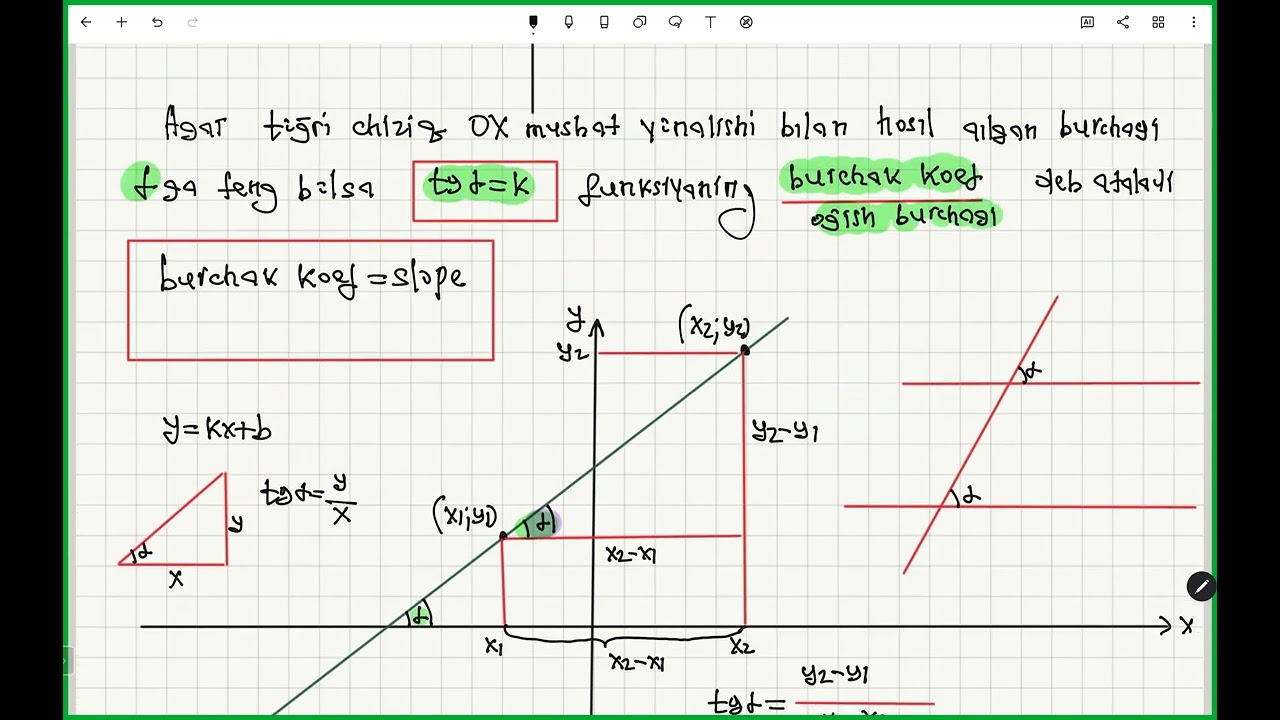 Agar to'g'ri chiziq OX musbat yo'nalishi bilan hosil qilgan burchagi
α ga teng bo'lsa tgα=k funksiyaning burchak koef deb ataladi
og'ish burchagi
burchak koef = slope
y
(x2;y2)
y2
α
y=kx+b
y2-y1
tgα=y/x
α
(x1;y1)
α
y
α
x2-x1
x
α
x
x1
x2
x2-x1
y2-y1
tgα=